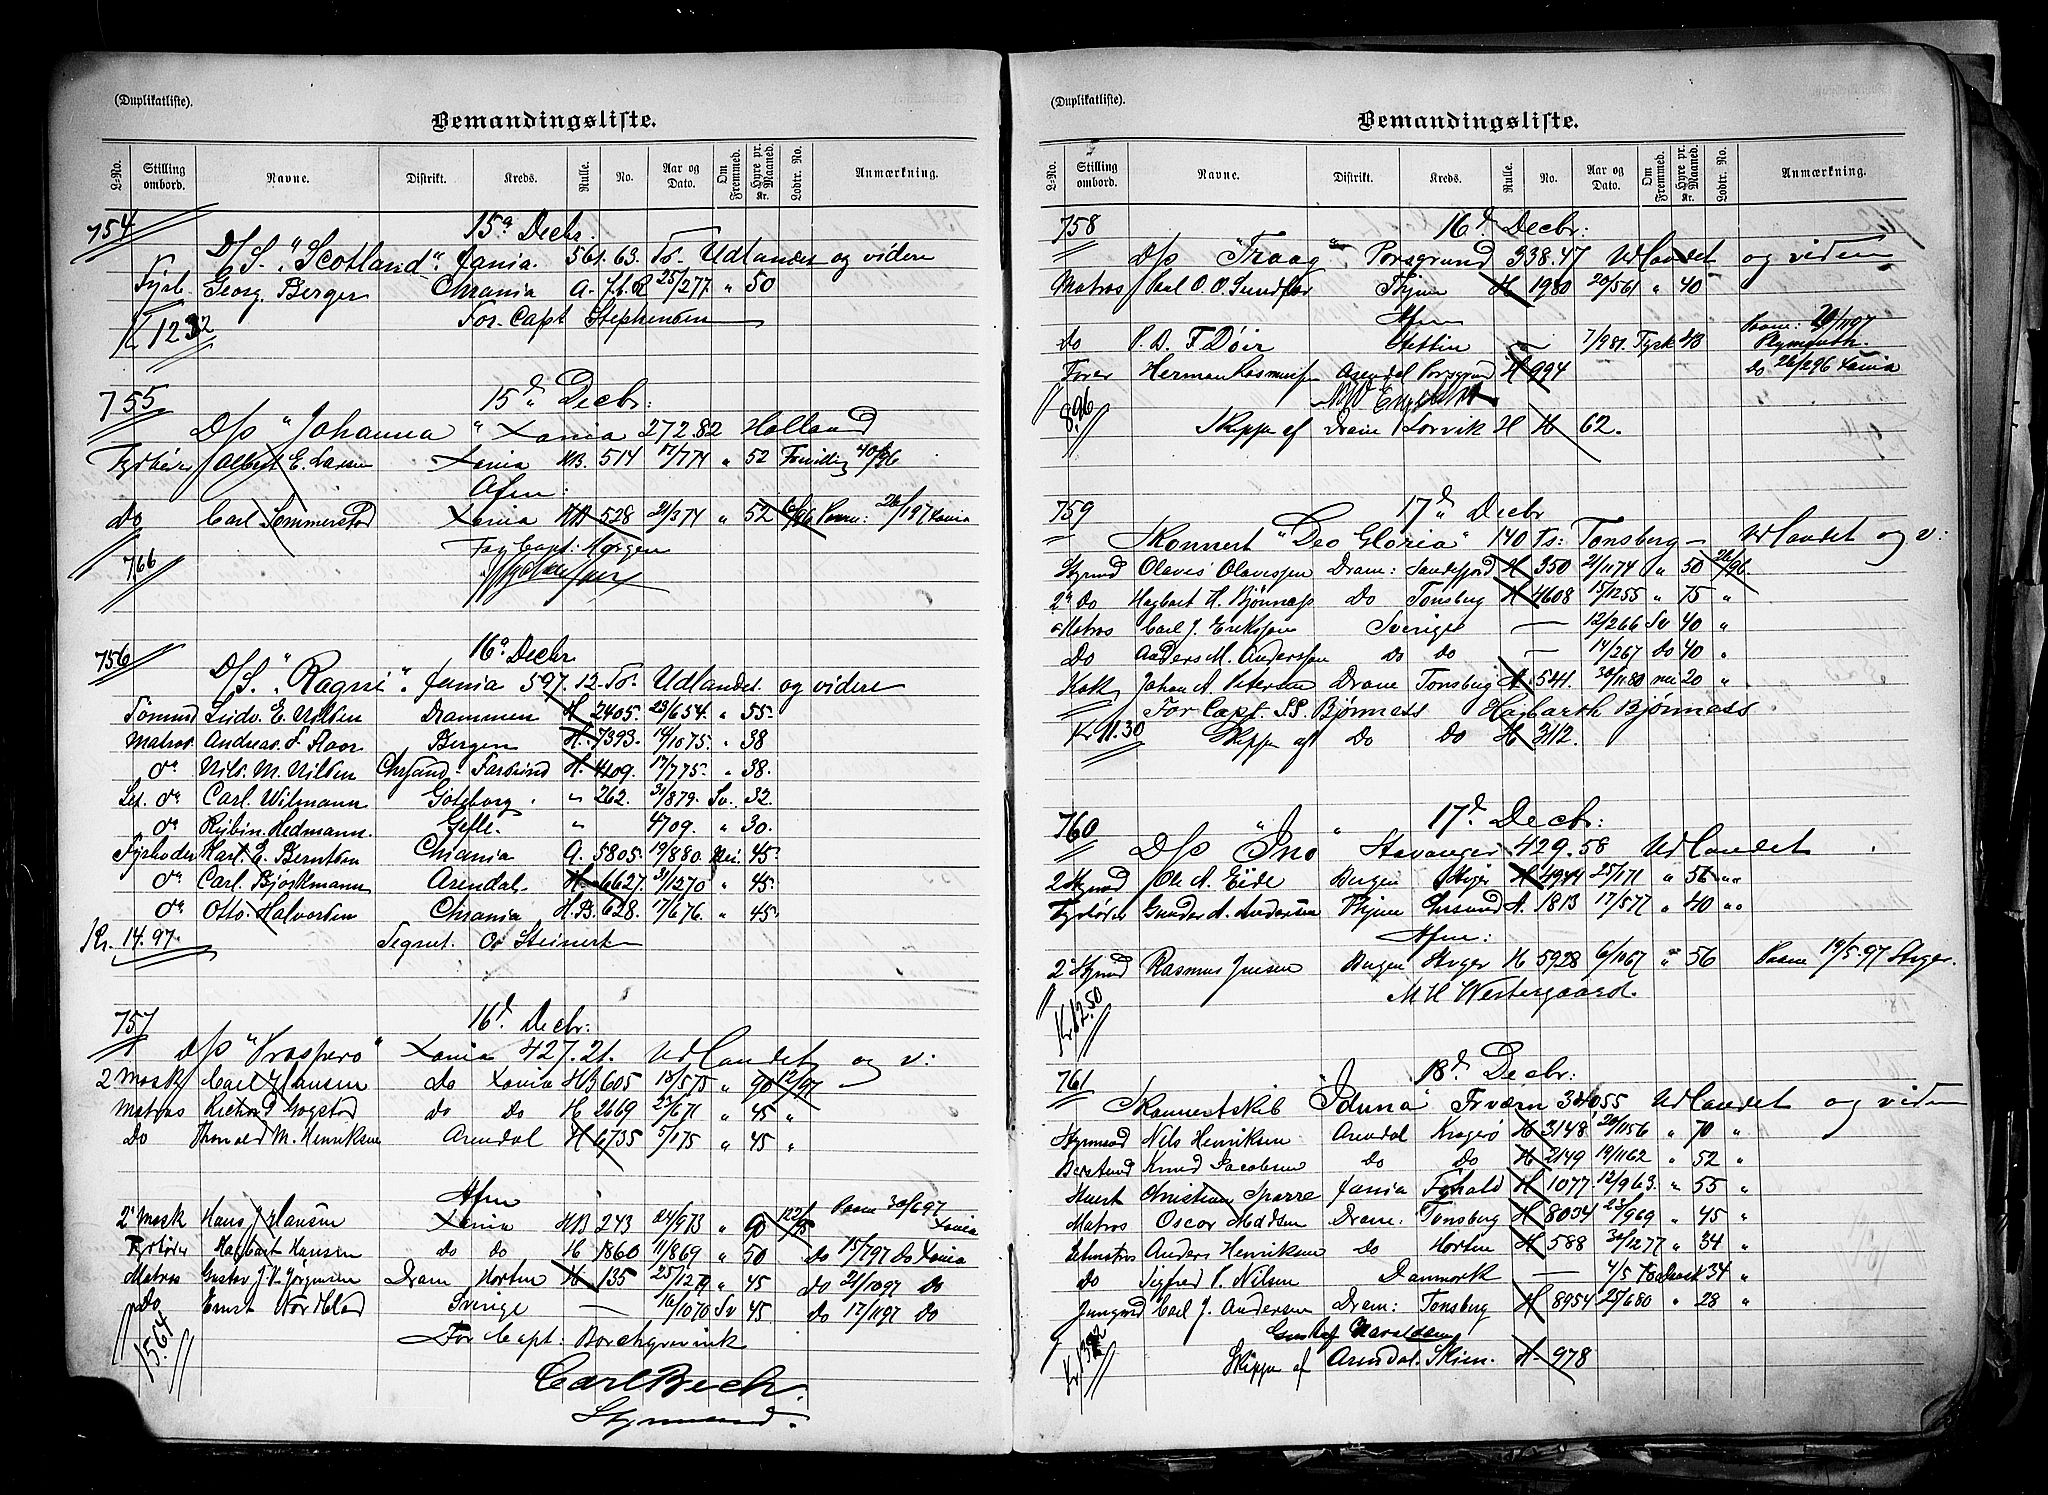 (Duplikatliste).
Bemandingsliste.
L-No. Stilling ombord. Navne. Distrikt. Kreds. Rulle. No. Aar og Dato. Om Fremmed. Hyre pr. Maaned. Kr. Lodtr. No. Anmærkning.
754 15d Decbr.
D/S. "Scotland". Xania. 561.63. To. Udlandet og videre
Fyrb. Georg Berger Chrania A. 25/277 " 50
For Capt Stephensen
755 15d Decbr:
D/S "Johanna" Xania 272.82 Holland
Fyrbøder Albert E. Larsen Xania HB. 514 17/774 " 52
Afm:
Do Carl Sommerstad Xania HB 528 21/374 " 52 26/197 Xania
766
756 16d Decbr
D/S. "Ragni". Xania 597.12. To. Udlandet. og videre
Tømmd Ludv. E. Nilsen Drammen H. 2405. 23/654. " 55.
Matros. Andreas F. Floor Bergen H. 7393. 14/1075. " 38
do Nils. M. Nilsen Chrsand. Farsund H. 4109. 17/775. " 38.
Let. do Carl. Wilmann Göteborg. " 262. 31/879. Sv. 32.
do Robin. Hedmann. Gefle. " 4709. " 30.
Fyrbøder Karl. E. Berntsen Chrania A. 5805. 19/880 45.
do Carl. Bjørkmann Arendal. H. 6627. 31/1270 " 45.
do Otto. Halvorsen Chrania H.B. 628. 17/676. " 45.
Kr. 14.97. Segnut. O. Steinert
757 16d Decbr:
D/S "Prospero" Xania 427.21. Udlandet og v:
2 Mask Carl Hansen do Xania HB 605 18/575 " 90 12/97
Matros Richard Gogstad do do H 2669 23/671 " 45 "
Do Thorvald M. Henriksen Arendal H 6735 5/175 " 45 "
Afm
2 Mask Hans J. Hansen Xania HB 243 24/973 " 90 30/697 Xania
Fyrbøder Hagbart Hansen do do H 1860 11/869 " 50 do 15/797 do Xania
Matros Gustav J. V. Jørgensen Dram Horten H 135 25/1279 " 45 do 21/1097 do
Do Ernst Nordblad Sverige — 16/1070 Sv 45 do 17/1197 do
1564
For Capt: Borchgrevink
Carl Bech.
Styrmand.
(Duplikatliste).
Bemandingsliste.
L-No. Stilling ombord. Navne. Distrikt. Kreds. Rulle. No. Aar og Dato. Om Fremmed. Hyre pr. Maaned. Kr. Lodtr. No. Anmærkning.
758 16d Decbr:
D/S "Traag" Porsgrund 338.47 Udlandet og videre
Matros Carl O. O. Sundfær Thjem H 1980 20/561 " 40
Afm
Do P. D. F. Döir Stettin — 7/981. Tysk 43 Plymouth.
Fører Herman Rasmussen Arendal Porsgrund H 994 Do 26/296 Xania
896
Skipper af Dram Larvik H 62.
759 17d Decbr
Skonnert "Deo Gloria" 140 Ts: Tønsberg — Udlandet og v:
Styrmd Olaves Olavessen Dram: Sandefjord H 350 21/1174 " 50 26/96.
2d Do Hagbart H. Bjønnæss Do Tønsberg H 4608 15/1255 " 75 "
Matros Carl J. Eriksson Sverige — 12/266 Sv 40 "
Do Anders M. Andersson do do — 14/267 do 40 "
Kok Johan A. Petersen Dram Tønsberg A. 544. 30/1180 20 "
For Capt. S.S. Bjønness Hagbarth Bjønness
Kr 11.30 Skipper af Do Do H 3112.
760 17d Decbr:
D/S "Ino" Stavanger 429.58 Udlandet
2 Styrmd Ole A. Eide Bergen Stvgr H 4944 25/171 " 56 ""
Fyrbøder Gunder A. Andersen Thjem Chrsund A. 1813 17/577 " 40 ""
Afm:
2 Styrmd Rasmus Jensen Bergen Stvger H 5928 6/1067 " 56 19/5.97 Stvger.
M H Westergaard.
Kr 12.50
761 18d Decbr:
Skonnertskib "Iduna" Tvæ 340.55 Udlandet og viden
Styrmand Nils Henriksen Arendal Kragerø H 3148 20/1156 " 70 "
Bestmd Knud Jacobsen Do Do H 2149 19/1162 " 52 "
Stuert Christian Sparre Xania H 1077 12/963. " 55 "
Matros Oscar Madsen Dram: Tønsberg H 8034 23/969 " 45 "
Letmatros Anders Henriksen Do Horten H 588 30/1277 " 34 "
Do Sigfred P. Nilsen Danmark — 4/578 Dansk 34 "
Jungmd Carl J. Andersen Dram: Tønsberg H 8954 25/680 " 28 "
Gustaf Haraldsen
Skipper af Arendal. Skien. H 978